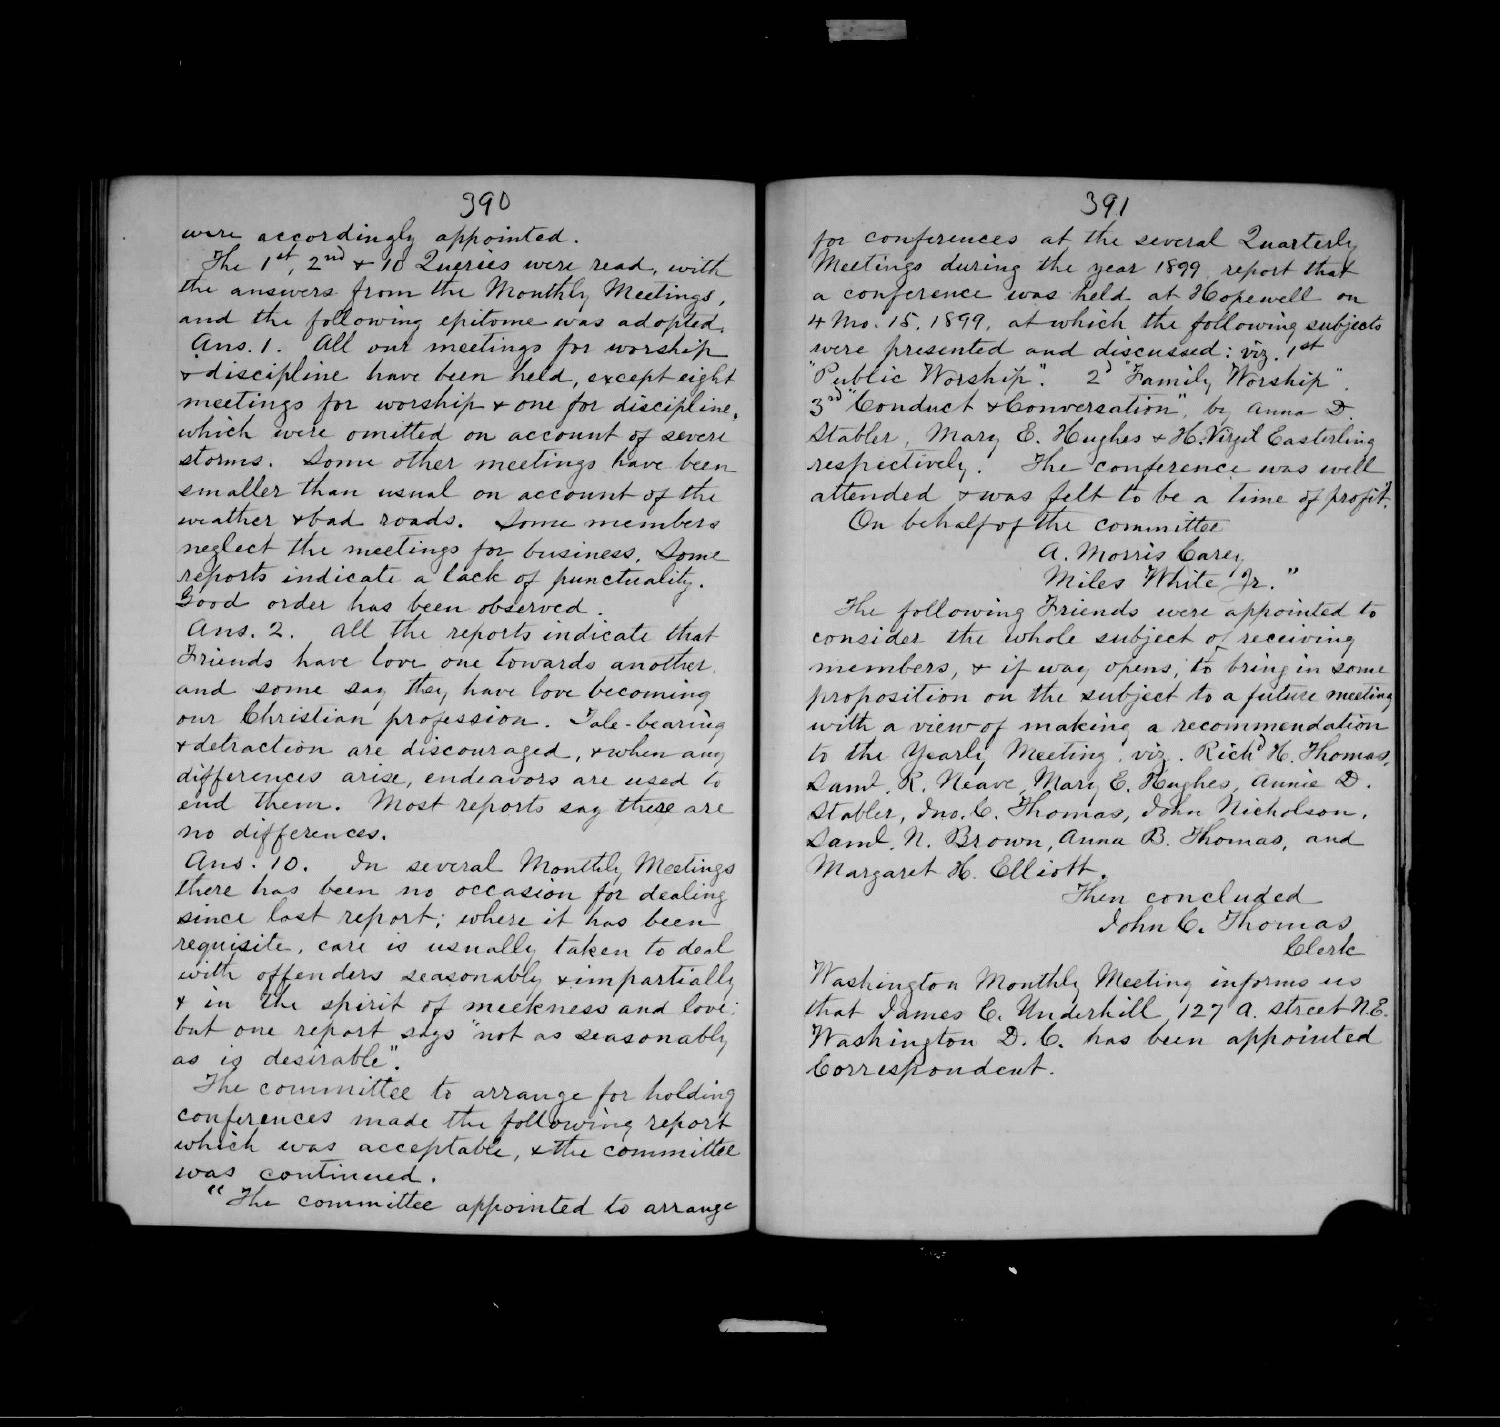 390
were accordingly appointed.
The 1st, 2nd & 10 Queries were read, with
the answers from the Monthly Meetings,
and the following epitome was adopted.
Ans. 1. All our meetings for worship
& discipline have been held, except eight
meetings for worship & one for discipline,
which were omitted on account of severe
storms. Some other meetings have been
smaller than usual on account of the
weather & bad roads. Some members
neglect the meetings for business. Some
reports indicate a lack of punctuality.
Good order has been observed.
Ans. 2. All the reports indicate that
Friends have love one towards another
and some say they have love becoming
our Christian profession. Tale-bearing
& detraction are discouraged, & when any
differences arise, endeavors are used to
end them. Most reports say there are
no differences.
Ans. 10. In several Monthly Meetings
there has been no occasion for dealing
since last report; where it has been
requisite, care is usually taken to deal
with offenders seasonably & impartially
& in the spirit of meekness and love;
but one report says "not as seasonably
as is desirable".
The committee to arrange for holding
conferences made the following report
which was acceptable, & the committee
was continued.
"The committee appointed to arrange
391
for conferences at the several Quarterly
Meetings during the year 1899 report that
a conference was held at Hopewell on
4 Mo. 15. 1899, at which the following subjects
were presented and discussed: viz. 1st
"Public Worship". 2d "Family Worship".
3rd "Conduct & Conversation", by Anna D.
Stabler, Mary E. Hughes & H. Virgil Easterling
respectively. The conference was well
attended & was felt to be a time of profit.
On behalf of the committee
A. Morris Carey
Miles White Jr."
The following Friends were appointed to
consider the whole subject of receiving
members, & if way opens, to bring in some
proposition on the subject to a future meeting
with a view of making a recommendation
to the Yearly Meeting: viz. Richd H. Thomas,
Saml. R. Neave, Mary E. Hughes, Annie D.
Stabler, Jno. C. Thomas, John Nicholson,
Saml. N. Brown, Anna B. Thomas, and
Margaret H. Elliott.
Then concluded
John C. Thomas
Clerk
Washington Monthly Meeting informs us
that James C. Underhill, 127 A. street N.E.
Washington D. C. has been appointed
Correspondent.